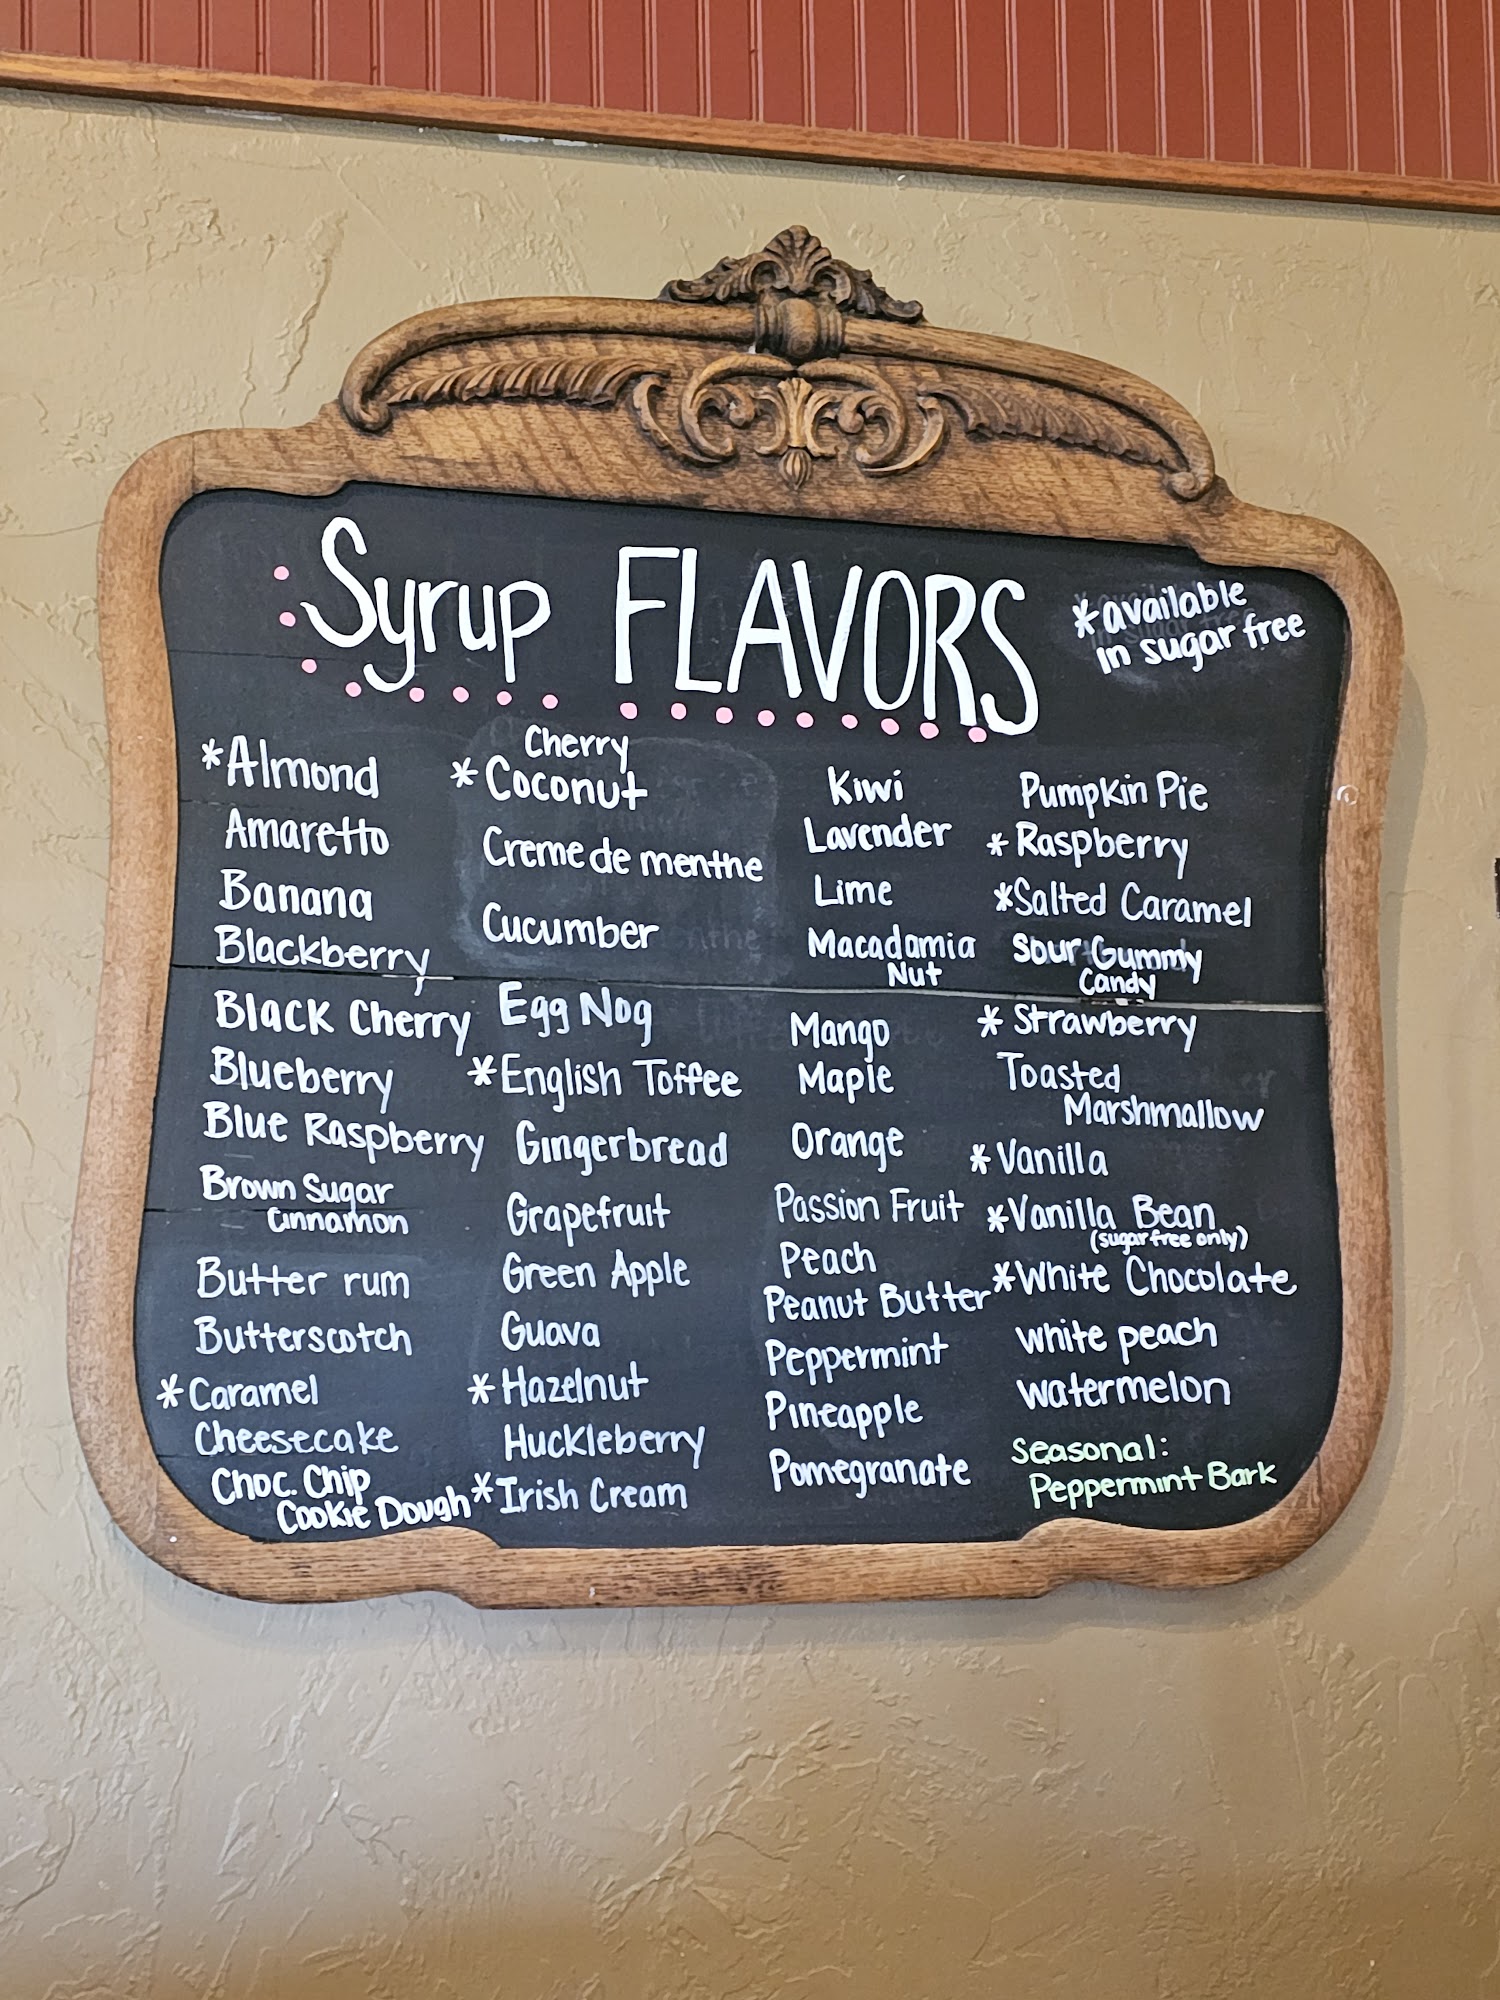 Syrup FLAVORS
*available
in sugar free
*Almond
Amaretto
Banana
Blackberry
Black Cherry
Blueberry
Blue Raspberry
Brown Sugar
Cinnamon
Butter rum
Butterscotch
*Caramel
Cheesecake
Choc. Chip
Cookie Dough
Cherry
*Coconut
Creme de menthe
Cucumber
Egg Nog
*English Toffee
Gingerbread
Grapefruit
Green Apple
Guava
*Hazelnut
Huckleberry
*Irish Cream
Kiwi
Lavender
Lime
Macadamia
Nut
Mango
Maple
Orange
Passion Fruit
Peach
Peanut Butter
Peppermint
Pineapple
Pomegranate
Pumpkin Pie
*Raspberry
*Salted Caramel
Sour Gummy
Candy
*Strawberry
Toasted
Marshmallow
*Vanilla
*Vanilla Bean
(sugar free only)
*White Chocolate
white peach
watermelon
Seasonal:
Peppermint Bark